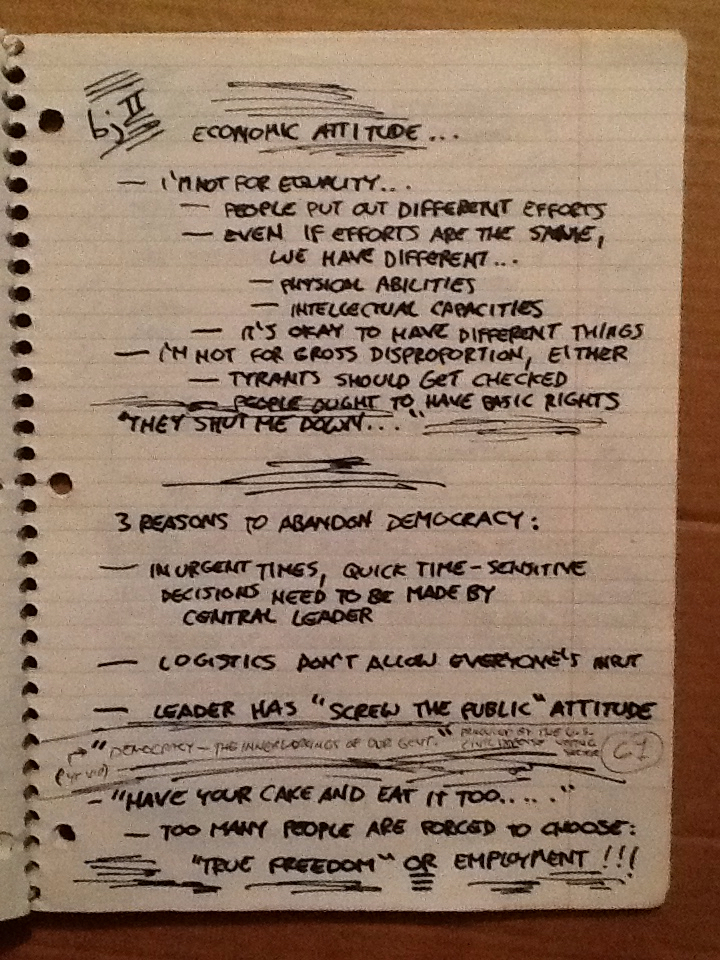 bj II
ECONOMIC ATTITUDE...
— I'M NOT FOR EQUALITY...
— PEOPLE PUT OUT DIFFERENT EFFORTS
— EVEN IF EFFORTS ARE THE SAME,
WE HAVE DIFFERENT...
— PHYSICAL ABILITIES
— INTELLECTUAL CAPACITIES
— IT'S OKAY TO HAVE DIFFERENT THINGS
— I'M NOT FOR GROSS DISPROPORTION, EITHER
— TYRANTS SHOULD GET CHECKED
— PEOPLE OUGHT TO HAVE BASIC RIGHTS
"THEY SHUT ME DOWN..."
3 REASONS TO ABANDON DEMOCRACY:
— IN URGENT TIMES, QUICK TIME-SENSITIVE
DECISIONS NEED TO BE MADE BY
CENTRAL LEADER
— LOGISTICS DON'T ALLOW EVERYONE'S INPUT
— LEADER HAS "SCREW THE PUBLIC" ATTITUDE
"DEMOCRACY — THE INNERLOPINGS OF OUR GOVT." BY THE U.S.
67
- "HAVE YOUR CAKE AND EAT IT TOO....."
— TOO MANY PEOPLE ARE FORCED TO CHOOSE:
"TRUE FREEDOM" OR EMPLOYMENT !!!